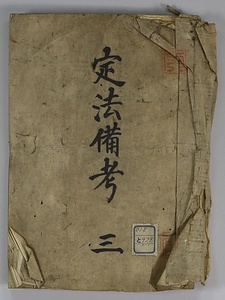 定法備考 三